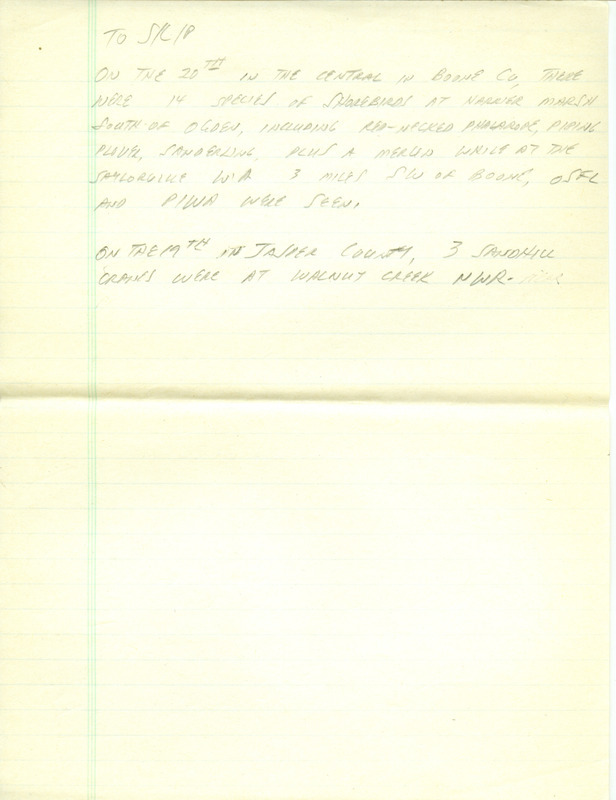 TO SKIP
ON THE 20TH IN THE CENTRAL IN BOONE CO, THERE
WERE 14 SPECIES OF SHOREBIRDS AT HARRIER MARSH
SOUTH OF OGDEN, INCLUDING RED-NECKED PHALAROPE, PIPING
PLOVER, SANDERLING, PLUS A MERLIN WHILE AT THE
SAYLORVILLE WA 3 MILES SW OF BOONE, OSFL
AND PIWA WERE SEEN.
ON THE 19TH IN JASPER COUNTY, 3 SANDHILL
CRANES WERE AT WALNUT CREEK NWR.